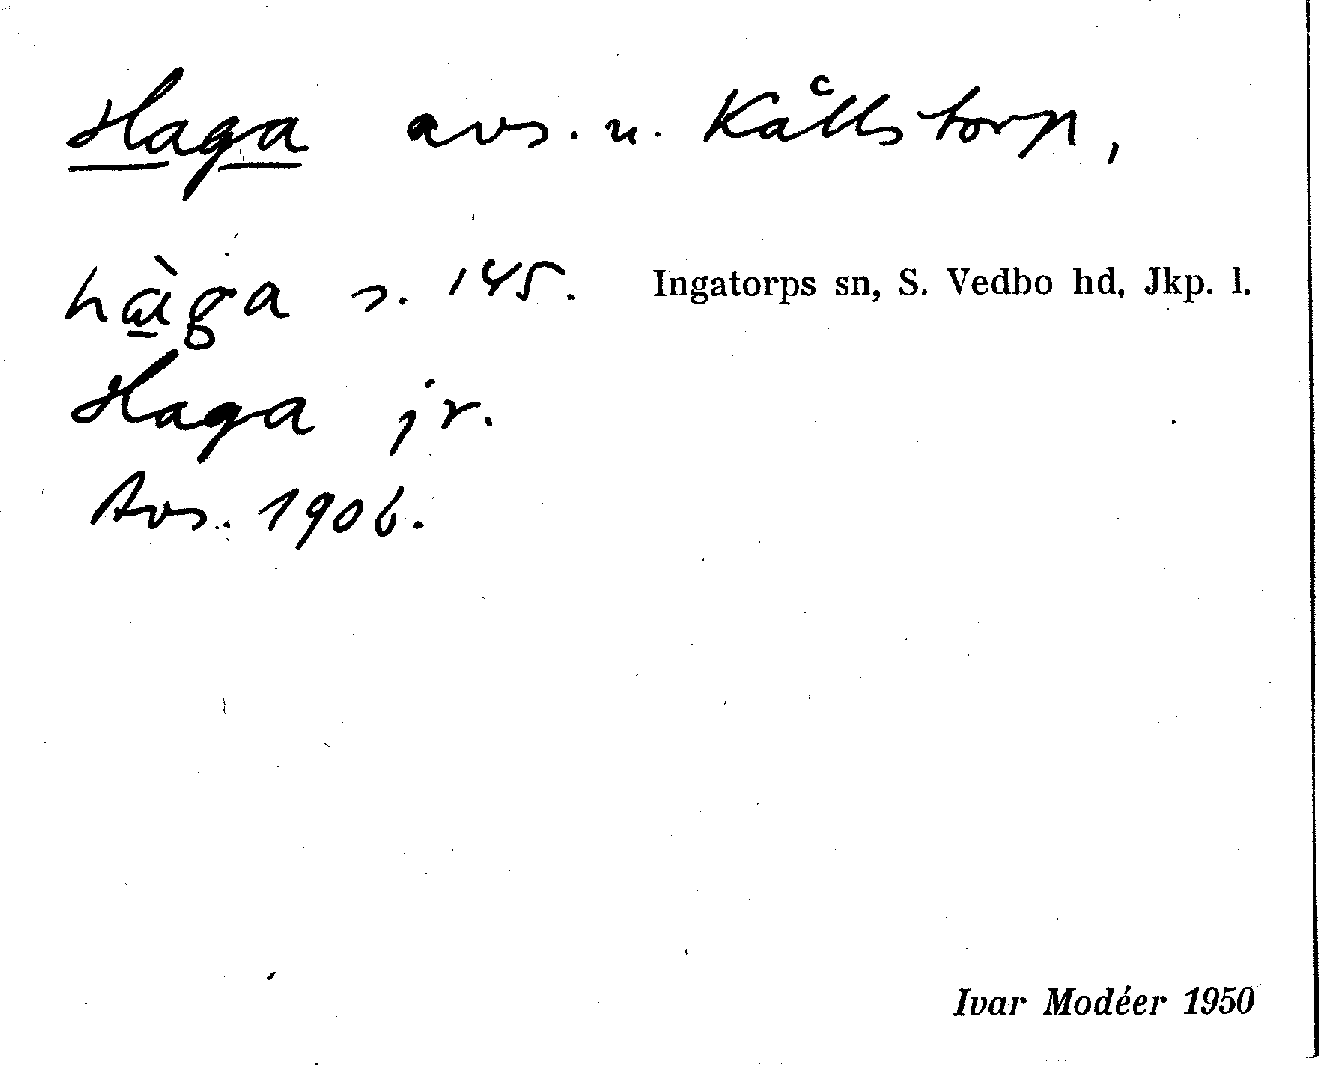 Haga avs. u. Kållstorp,
hàga s. 145. Ingatorps sn, S. Vedbo hd, Jkp. l.
Haga jr.
Avs. 1906.
Ivar Modéer 1950